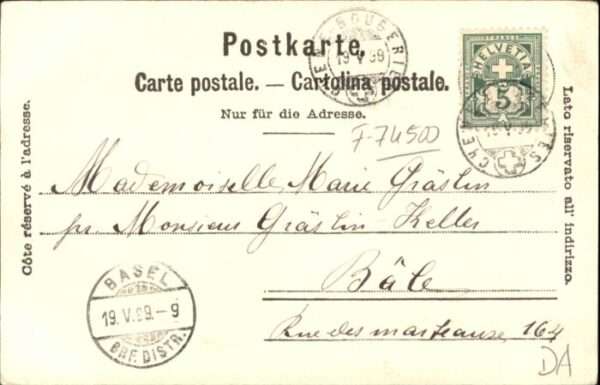 Postkarte.
Carte postale. — Cartolina postale.
Nur für die Adresse.
Côte réservé à l'adresse.
Lato riservato all' indirizzo.
HELVETIA
FRANCO
5
19 V 99
F-74500
Mademoiselle Marie Gräslin
pr. Monsieur Gräslin-Keller
Bâle
Rue des marteaux 164
BASEL
19.V.99.-9
BRF. DISTR.
DA